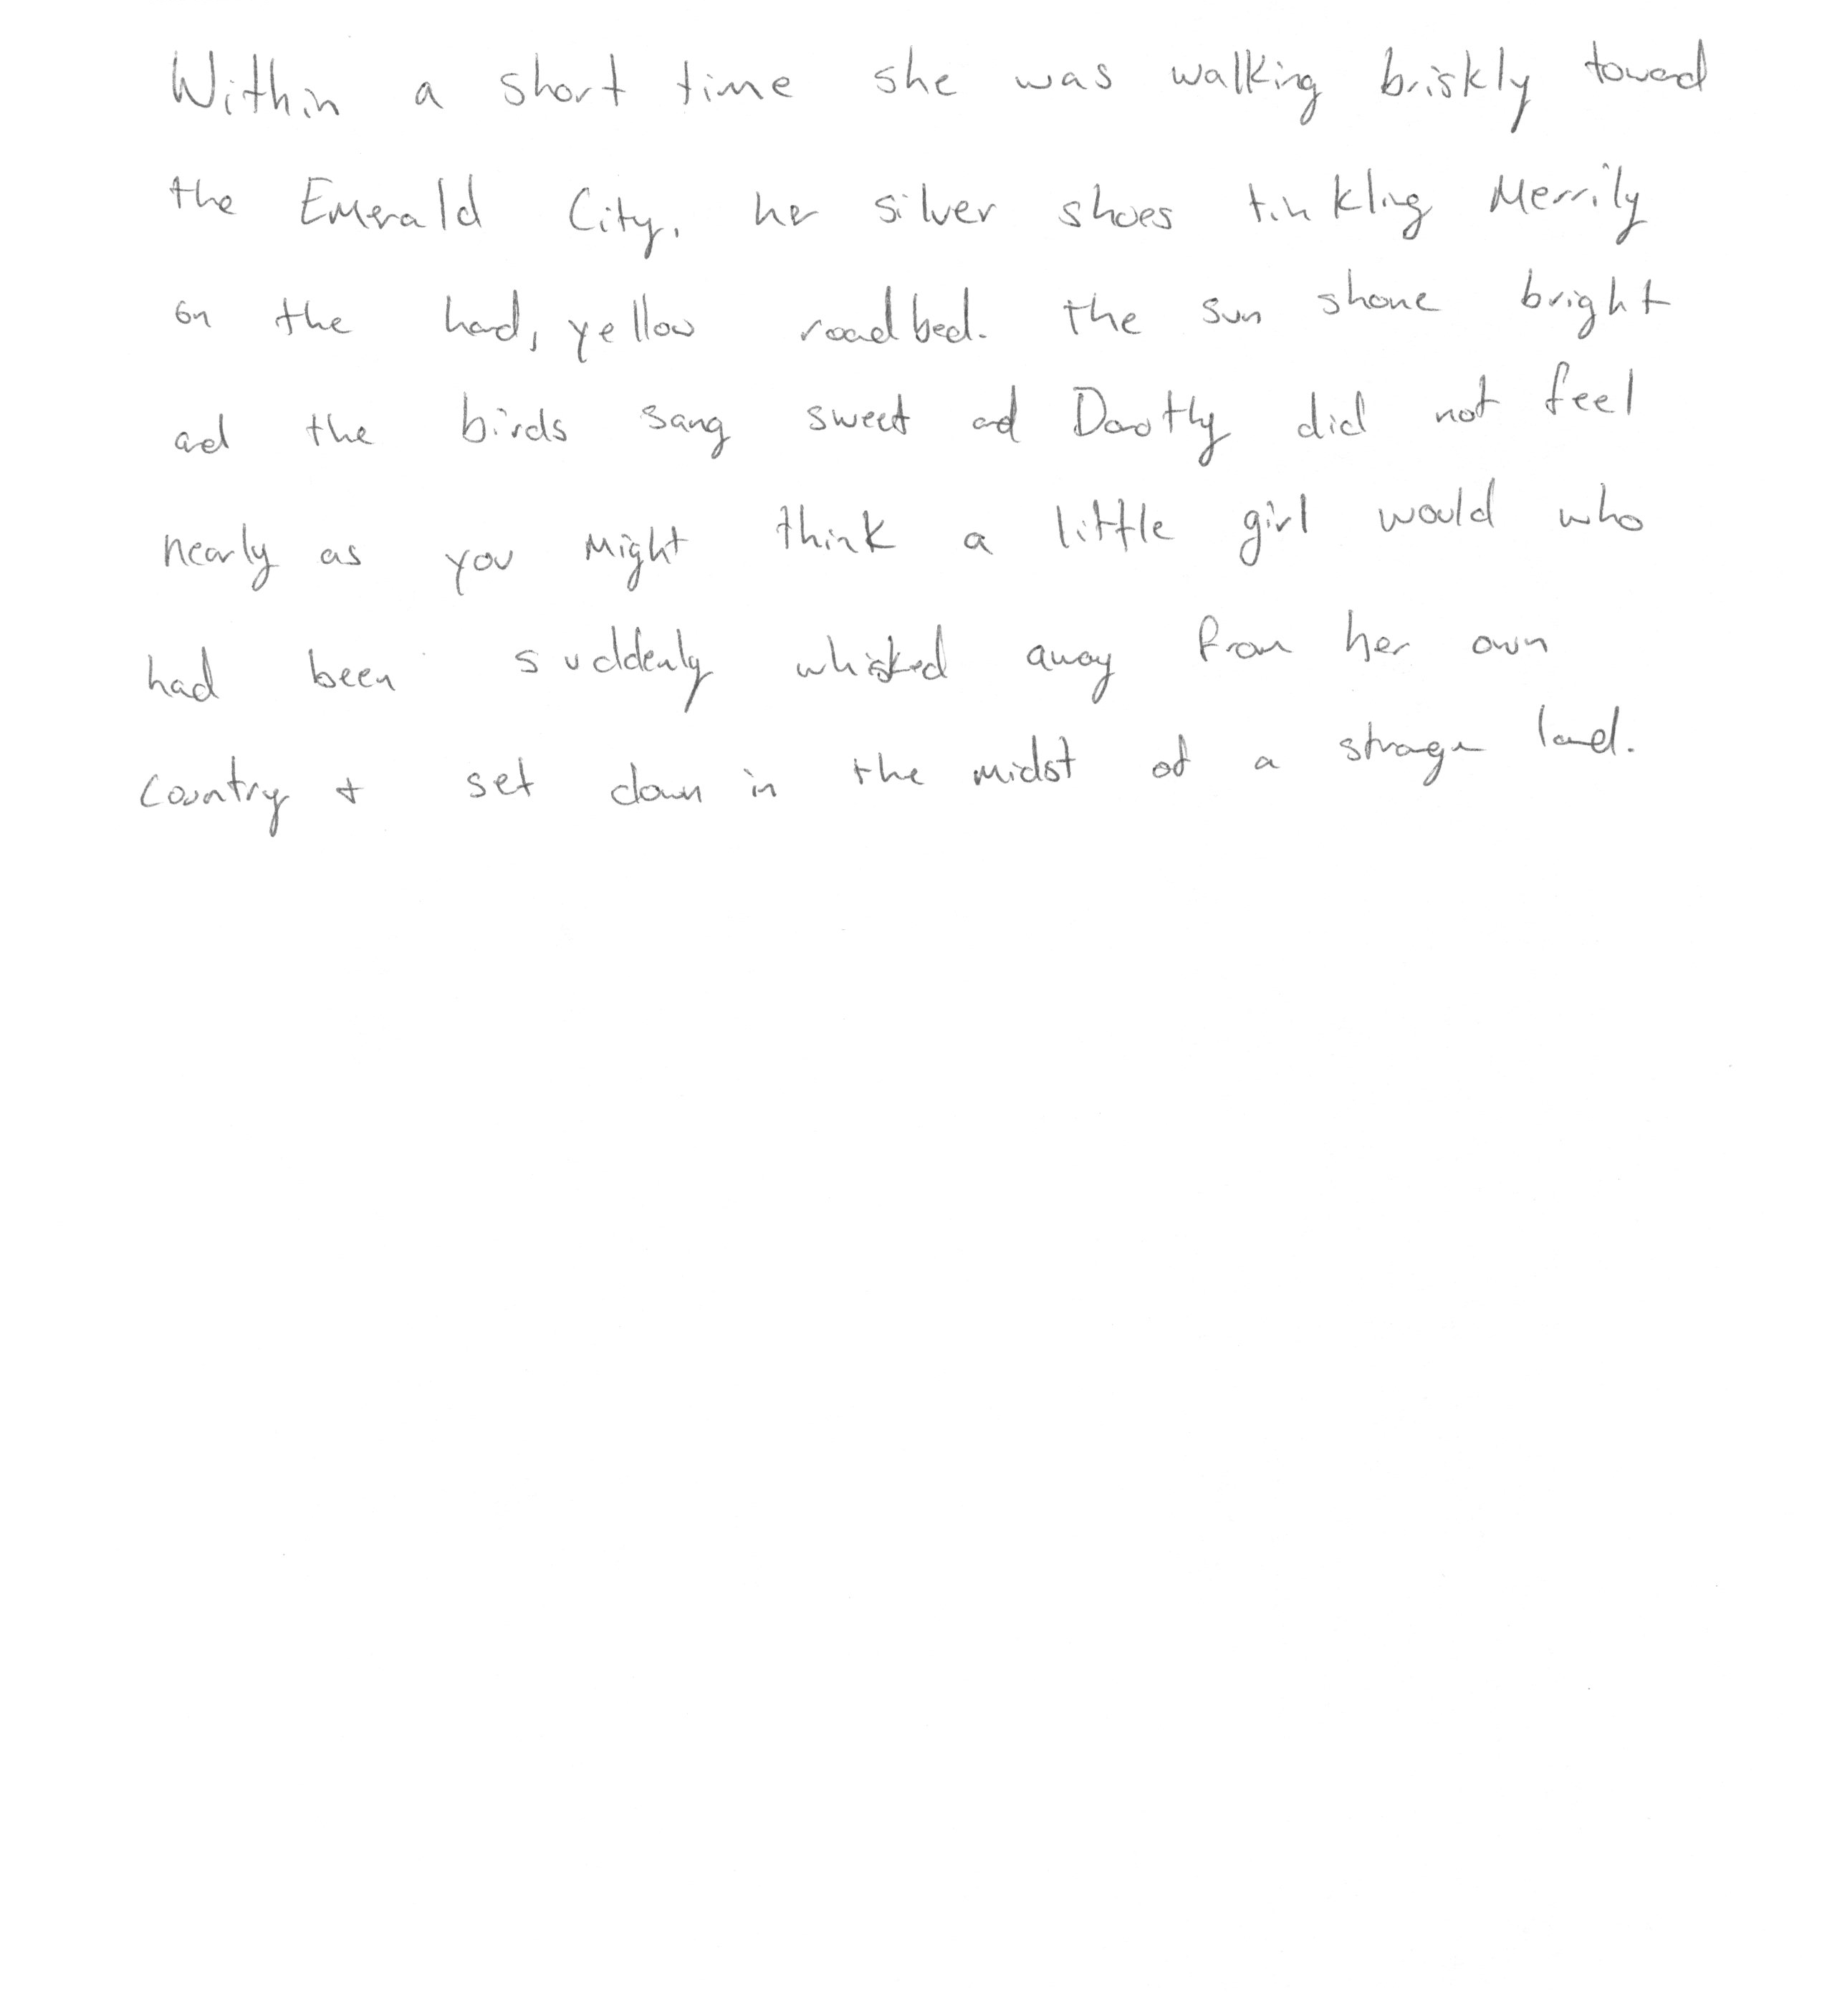 Within a short time she was walking briskly toward
the Emerald City, her silver shoes tinkling merrily
on the hard, yellow roadbed. the sun shone bright
and the birds sang sweet and Dorothy did not feel
nearly as you might think a little girl would who
had been suddenly whisked away from her own
country + set down in the midst of a strange land.